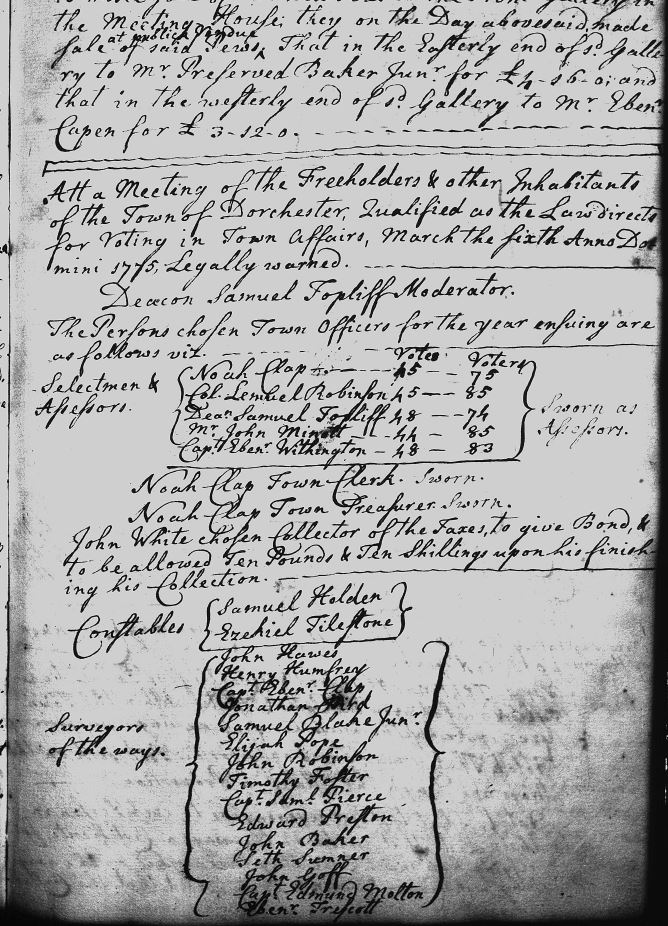 the Meeting House; they on the Day abovesaid, made
at publick Vendue
sale of said Pews, That in the Easterly end of sd. Galle-
ry to Mr. Preserved Baker Junr. for £4-16-0; and
that in the westerly end of sd. Gallery to Mr. Ebenr.
Capen for £ 3-12-0.
Att a Meeting of the Freeholders & other Inhabitants
of the Town of Dorchester, Qualified as the Law directs
for Voting in Town Affairs, March the sixth Anno Do-
mini 1775, Legally warned.
Deacon Samuel Topliff Moderator.
The Persons chosen Town Officers for the year ensuing are
as follows viz.
Votes Voters
Selectmen &
Assessors.
Noah Clap — 45 — 75
Col. Lemuel Robinson 45 — 85
Dean. Samuel Topliff 48 — 74
Mr. John Minott — 44 — 85
Capt. Ebenr. Withington — 48 — 83
Sworn as
Assessors.
Noah Clap Town Clerk. Sworn.
Noah Clap Town Treasurer Sworn.
John White chosen Collector of the Taxes, to give Bond, &
to be allowed Ten Pounds & Ten Shillings upon his finish-
ing his Collection.
Constables
Samuel Holden
Ezekiel Tilestone
Surveyors
of the ways.
John Hawes
Henry Humfrey
Capt. Ebenr. Clap
Jonathan
Samuel Blake Junr.
Elijah Pope
John Robinson
Timothy Foster
Capt. Saml. Pierce
Edward Preston
John Baker
Seth Sumner
John Goff
Capt Edmund Molton
Ebenr. Trescott